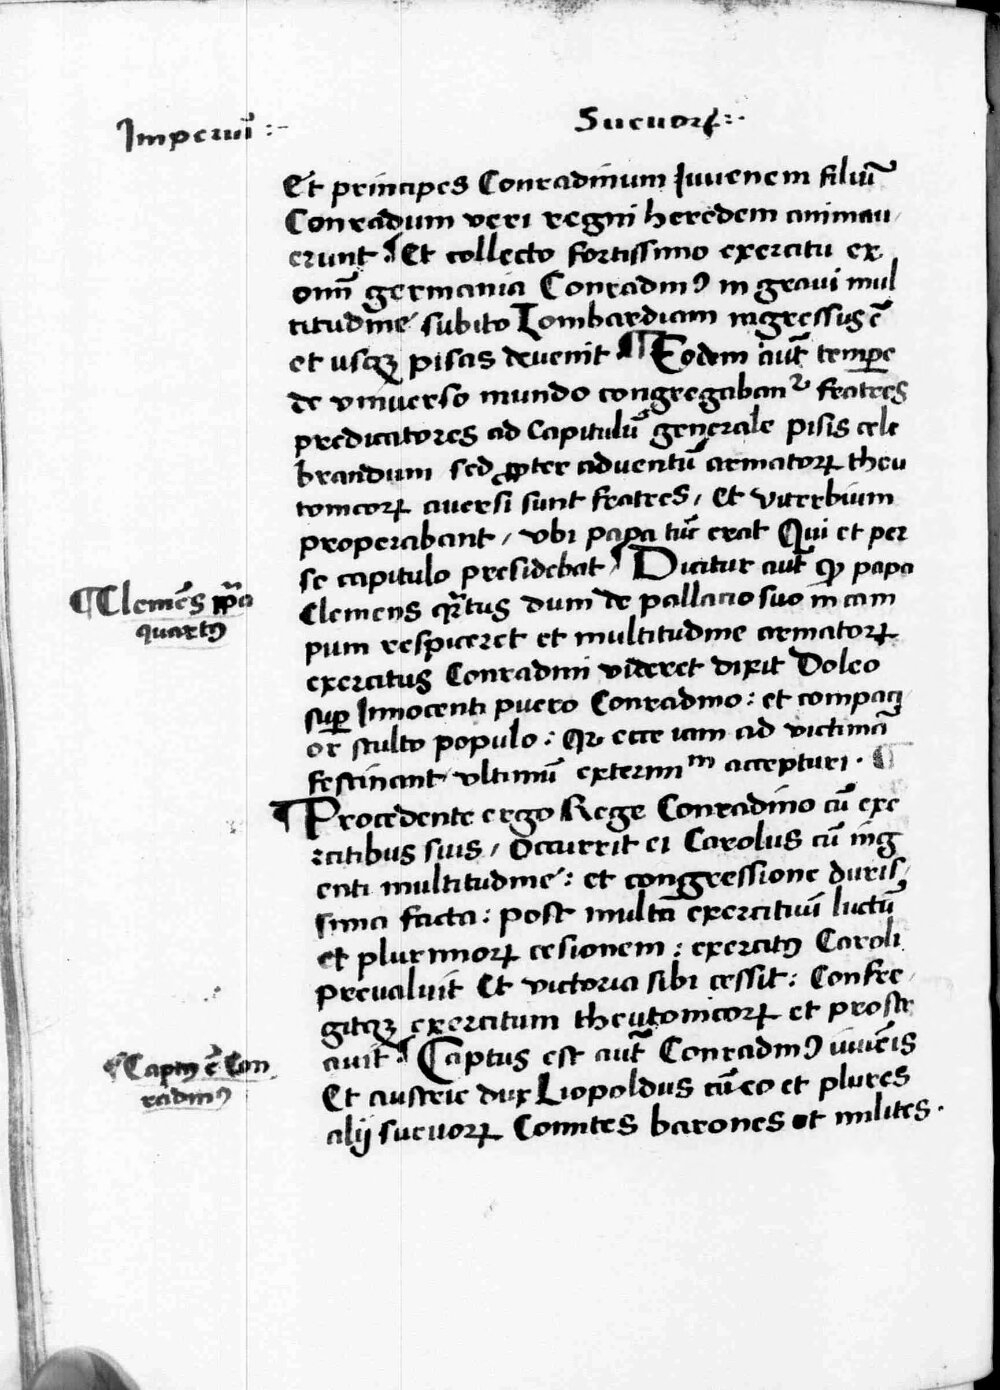 Imperiū :-
Sueuorꝝ :·
Et principes Conradinum Iuuenem filiū
Conradum veri regni heredem animau
erunt ¶ Et collecto fortissimo exercitu ex
omī germania Conradinꝰ in graui mul
titudine subito Lombardiam ingressus ē
et usqꝫ pisas deuenit ¶ Eodem aūt tempe
de vniuerso mundo congregabanͬ fratres
predicatores ad Capitulū generale pisis cele
brandum sed ꝓpter aduentū armatorꝝ theu
tonicorꝝ auersi sunt fratres / et viterbium
properabant / vbi papa tūc erat Qui et per
se capitulo presidebat ¶ Dicitur aūt ꝙ papa
¶ Clemēs pp̄a
quartꝰ
Clemens qr̄tus dum de pallacio suo in cam
pum respiceret et multitudine armatorꝝ
exercitus Conradini videret dixit Doleo
suꝑ Innocenti puero Conradino : et compaci
or stulto populo : Qꝛ ecce iam ad victimā
festinant vltimū extermīm accepturi · ¶
¶ Procedente ergo Rege Conradino cū exe
rcitibus suis / Occurrit ei Carolus cū ing
enti multitudine : et congressione duris
sima facta : post multā exercituū luctū
et plurimorꝝ cesionem : exercitꝰ Caroli
preualuit Et victoria sibi cessit : Confre
gitqꝫ exercitum theutonicorꝝ et prostr
auit ¶ Captus est aūt Conradinꝰ iuuēis
¶ Captꝰ ē Con
radinꝰ
Et austrie dux Liopoldus cū eo et plures
alij sueuorꝝ Comites barones et milites ·